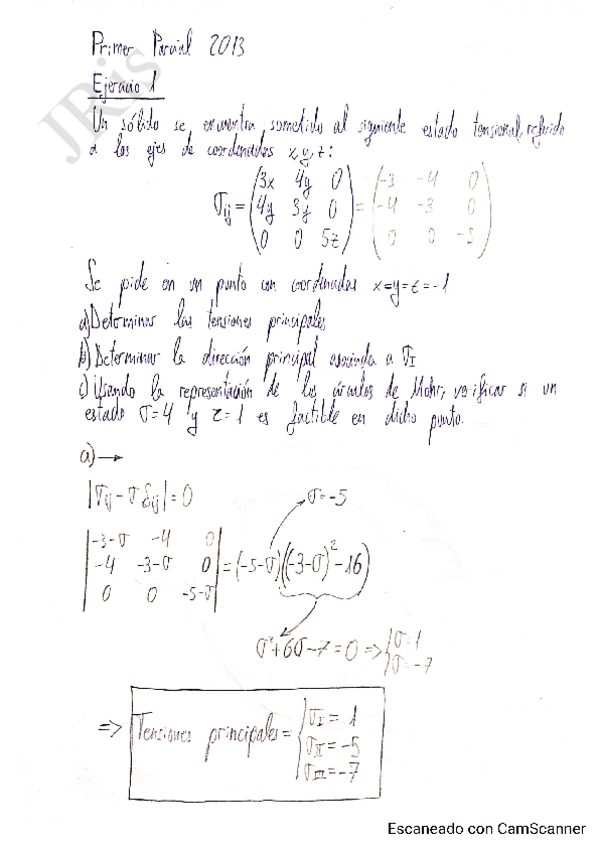 Primer Parcial 2013
JRis
Ejercicio 1
Un sólido se encuentra sometido al siguiente estado tensional, referido
a los ejes de coordenadas x, y, z:
σij = (3x 4y 0; 4y 3y 0; 0 0 5z) = (-3 -4 0; -4 -3 0; 0 0 -5)
Se pide en un punto con coordenadas x=y=z=-1
a) Determinar las tensiones principales
b) Determinar la dirección principal asociada a σI
c) Usando la representación de los círculos de Mohr, verificar si un
estado σ=4 y τ=1 es factible en dicho punto.
a) →
|σij - σ δij| = 0
σ=-5
|-3-σ -4 0; -4 -3-σ 0; 0 0 -5-σ| = (-5-σ)((-3-σ)²-16)
σ²+6σ-7=0 => {σ=1
σ=-7
=> Tensiones principales = {σI = 1
σII = -5
σIII = -7
Escaneado con CamScanner